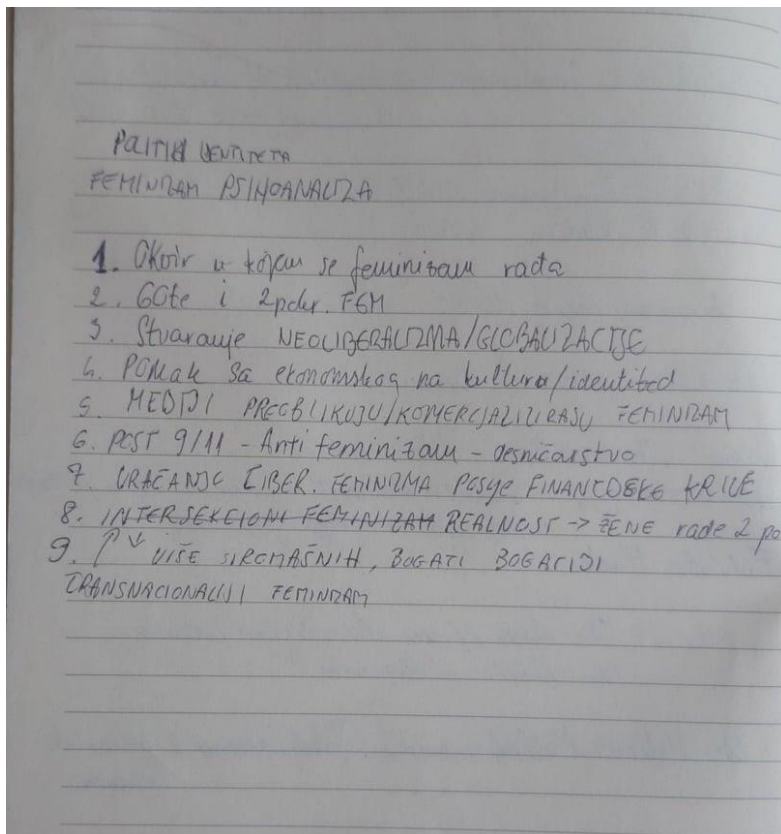 POLITIKA IDENTITETA
FEMINIZAM PSIHOANALIZA
1. Okvir u kojem se feminizam rađa
2. 60te i 2 FEM
3. Stvaranje NEOLIBERALIZMA/GLOBALIZACIJE
4. POMAK sa ekonomskog na kultura/identitet
5. MEDIJI PREOBLIKUJU/KOMERCIJALIZIRAJU FEMINIZAM
6. POST 9/11 - Anti feminizam - desničarstvo
7. VRAĆANJE LIBER. FEMINIZMA POSLJE FINANCIJSKE KRIZE
8. INTERSEKCIONI FEMINIZAM REALNOST -> ŽENE rade 2 po
9. ↑ ↓ VIŠE SIROMAŠNIH, BOGATI BOGATIJI
TRANSNACIONALNI FEMINIZAM